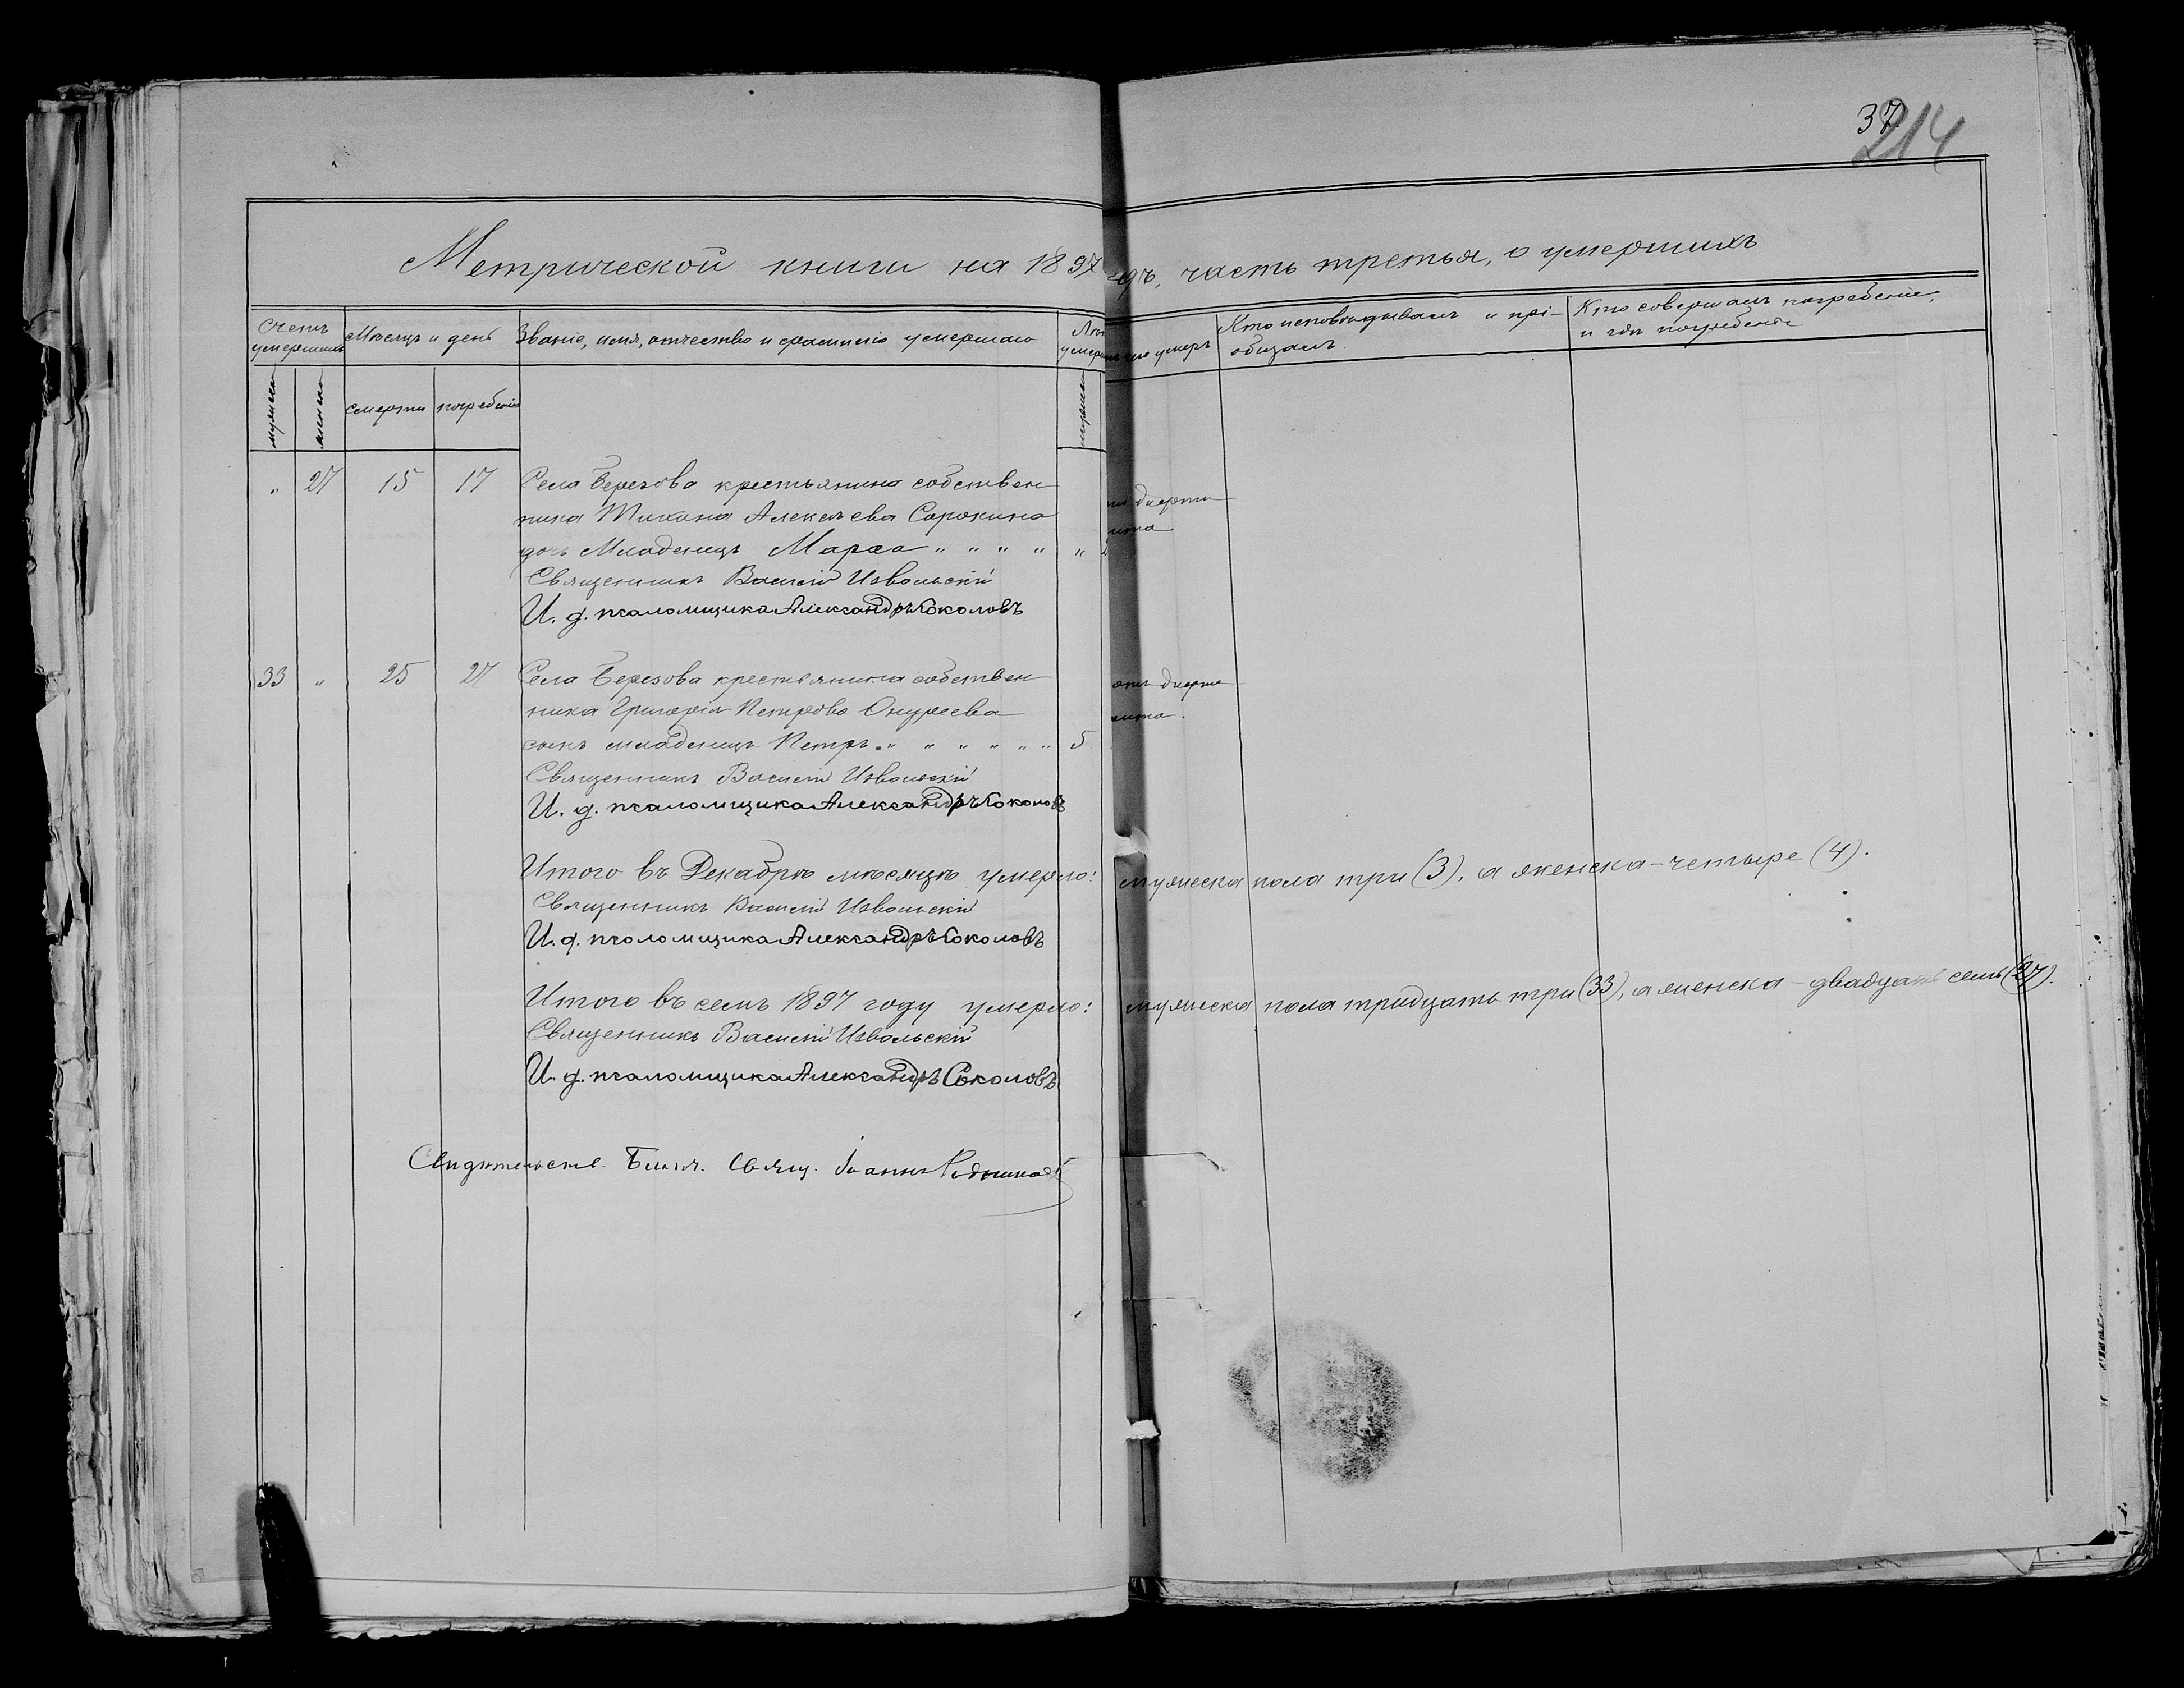 37
214
Метрической книги на 1897 годъ, часть третья, о умершихъ
Счетъ умершихъ
Мѣсяцъ и день
Званіе, имя, отчество и фамилія умершаго
Кто исповѣдывалъ и прі-
общалъ
Кто совершалъ погребеніе,
и гдѣ погребенъ
мужеска
женска
смерти
погребенія
мужеска
" 27 15 17 Села Березова крестьянина собствен
ника Тихона Алексѣева Сорокина
дочь Младенецъ Марѳа " " " " "
Священникъ Василій Извольскій
И. д. псаломщика Александръ Соколовъ
33 " 25 27 Села Березова крестьянина собствен
ника Григорія Петрова
сынъ младенецъ Петръ " " " " " " 5
Священникъ Василій Извольскій
И. д. псаломщика Александръ Соколовъ
Итого въ Декабрѣ мѣсяцѣ умерло: мужеска пола три (3), а женска – четыре (4).
Священникъ Василій Извольскій
И. д. псаломщика Александръ Соколовъ
Итого въ семъ 1897 году умерло: мужеска пола тридцать три (33), а женска – двадцать семь (27).
Священникъ Василій Извольскій
И. д. псаломщика Александръ Соколовъ
Свидѣтельств. Благ. Свящ. Іоаннъ